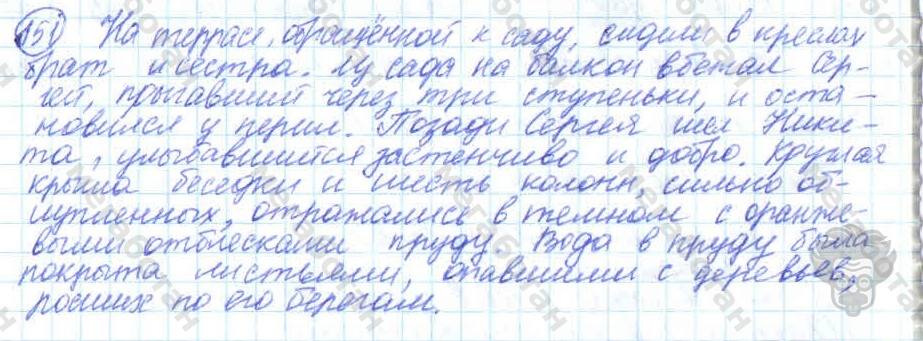 151 На террасе, обращённой к саду, сидели в креслах
брат и сестра. Из сада на балкон вбежал Сер-
гей, прыгавший через три ступеньки, и оста-
новился у перил. Позади Сергея шел Ники-
та, улыбавшийся застенчиво и добро. Круглая
крыша беседки и шесть колонн, сильно об-
лупленных, отражались в темном с оранже-
выми отблесками пруду. Вода в пруду была
покрыта листьями, опавшими с деревьев,
росших по его берегам.
мегаботан